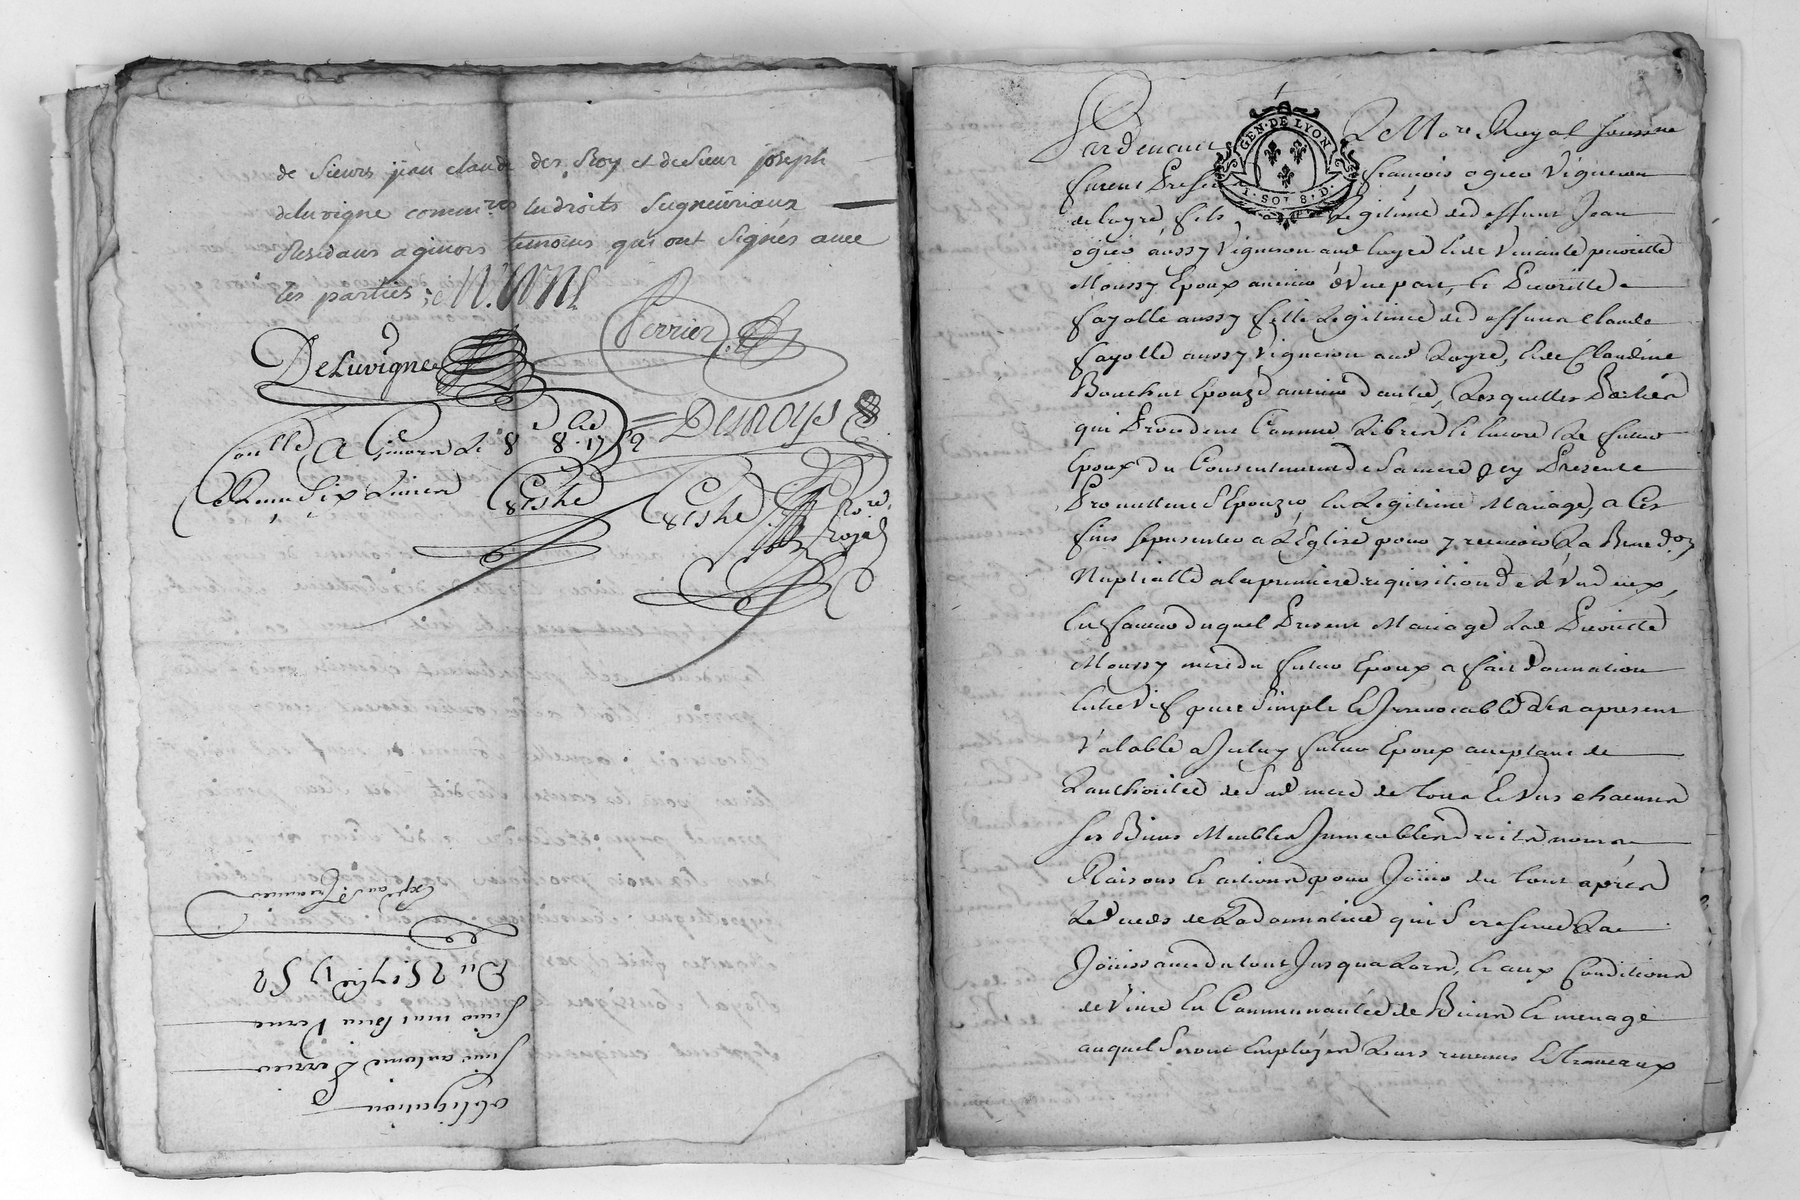 de Sieurs jean claude des Roy et de Sieur joseph
deluvigne comm.res en droits Seigneuriaux
Residans a givors temoins qui ont Signés avec
les parties
Perrier
DeLuvigne
DeRoys
Coullé A Givors Le 8 8.bre 1752
Royal
Obligation
Sieur antoine Perrier
Du 25 7bre 1752
Pardevant Le No.re Royal Soussigné
GEN. DE LYON
SOT 8. D.
furent Presents françois ogier Vigneron
de Loyre fils Legitime de deffunt Jean
ogier aussy Vigneron aud Loyre et de Vivante pierrette
Moussy Epoux avenir d'Une part, et Pierrette
fayolle aussy fille Legitime de deffunct Claude
fayolle aussy Vigneron aud Loyre, et de Claudine
Bouchut Epouze avenir d'autre, Lesquelles Parties
qui Procedent Comme Libres et Encore Led futur
Epoux du Consentement de Sa mere Icy Presente
Promettent S'Epouzer En Legitime Mariage, a Ces
fins se presenter a L'Eglise pour y recevoir La Bened.on
Nuptialle a la premiere requisition de L'Un deux,
En faveur duquel Present Mariage Lad Pierrette
Moussy mere du futur Epoux a fait Donnation
Entre Vif pure Simple et Irrevocable des apresent
Valable a Iceluy futur Epoux acceptant de
L'authorité de Sad mere de tous et Uns chacuns
Ses Biens Meubles Immeubles droits noms
Raisons et actions pour Joüir du tout après
Le deceds de Lad donnatrice qui Se reserve La
Joüissance du tout Jusqua Lors, et aux Conditions
de Vivre En Communauté de Biens et menage
auquel Seront Employés Leurs revenus et travaux